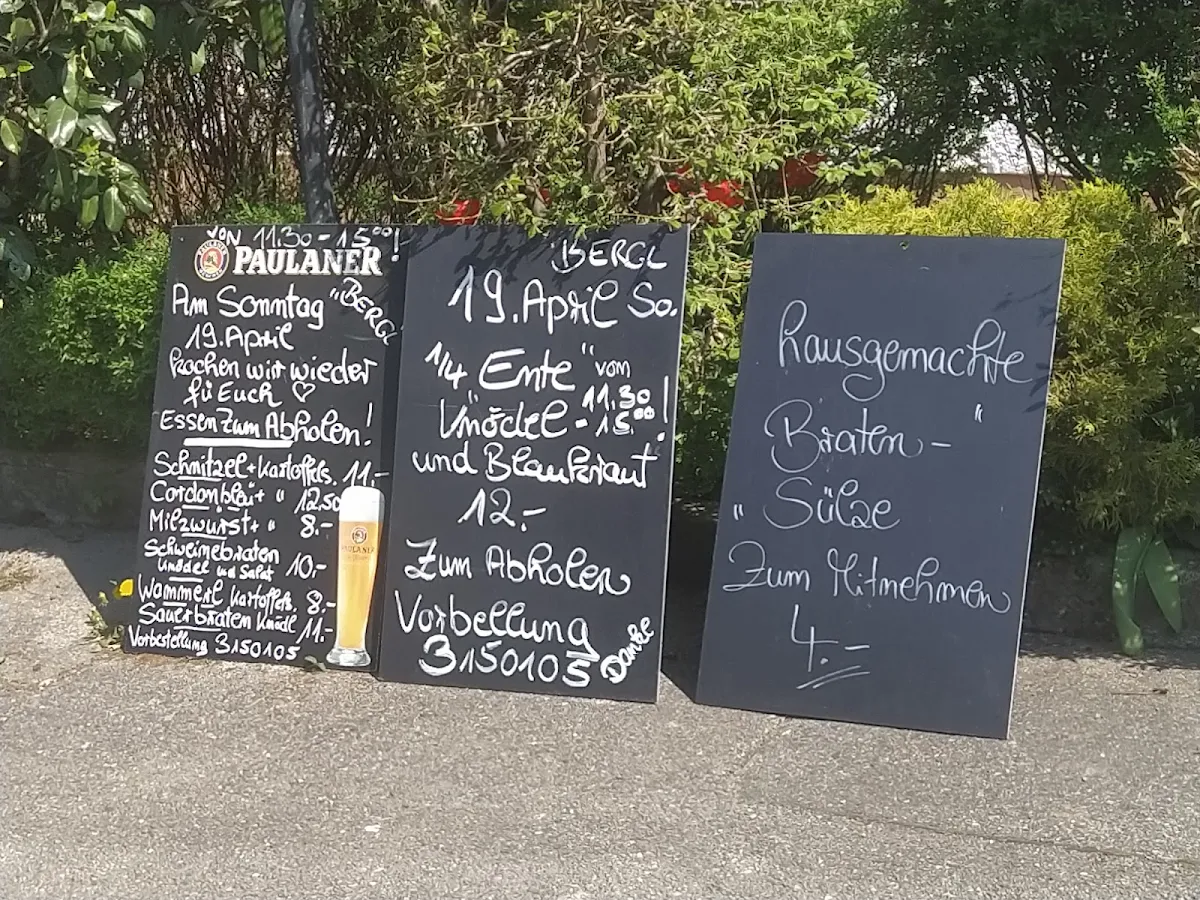 VON 11.30-15⁰⁰!
PAULANER
Am Sonntag "BERGL
19. April
kochen wir wieder
für Euch ♡
Essen zum Abholen!
Schnitzel + Kartoffels. 11,-
Cordonbleu + " 12.50
Milzwurst + " 8.-
Schweinebraten
Knödel und Salat 10,-
Wammerl Kartoffels. 8.-
Sauerbraten Knödl 11.-
Vorbestellung 3150105
PAULANER
BERGL
19. April So.
"1/4 Ente" vom
Knödel 11.30 - 15.⁰⁰!
und Blaukraut
12.-
Zum Abholen
Vorbellung
3150105 Danke
hausgemachte
Braten - "
" Sülze
Zum Mitnehmen
4.-